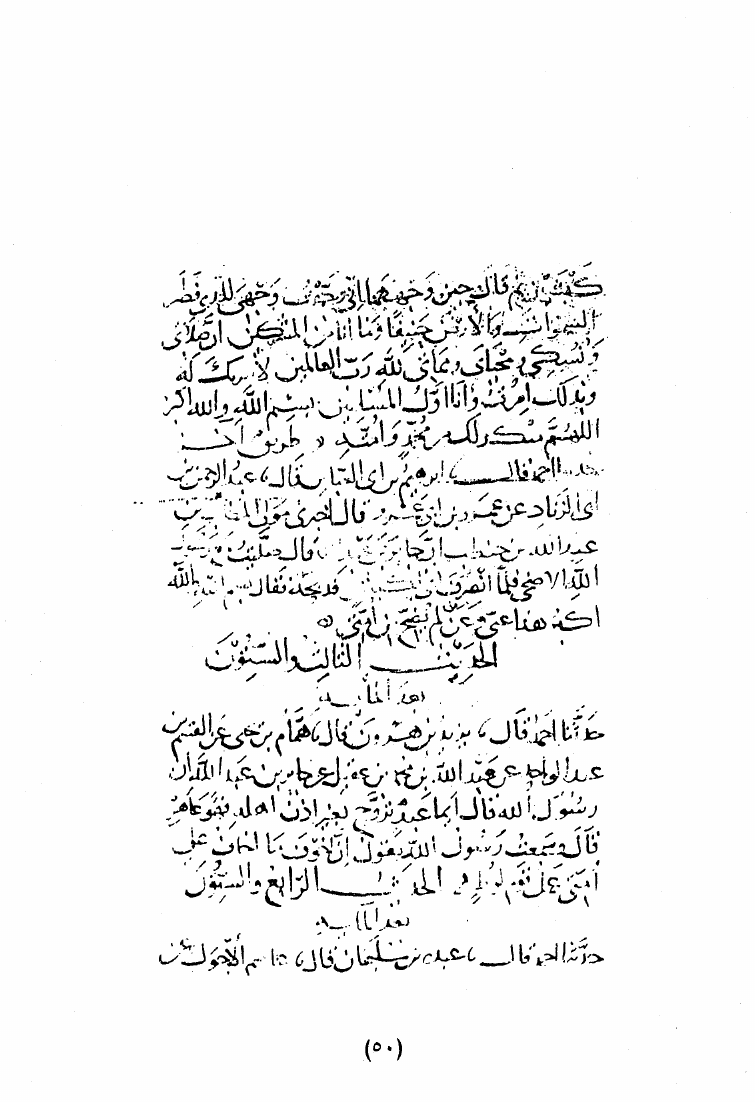 قال حين وجههما اني وجهت وجهي للذي فطر
السموات والارض حنيفا وما انا من المشركين ان صلاتي
ونسكي ومحياي ومماتي لله رب العالمين لا شريك له
وبذلك امرت وانا اول المسلمين بسم الله والله اكبر
اللهم منك ولك من محمد وامته طريق اخر
احمد قال ابرهيم بن ابي العباس قال عبد الرحمن بن
ابي الزناد عن عمرو بن ابي عمرو قال اخبرني مولى المطلب بن
عبد الله بن حنطب ان جابر بن قال صليت
الاضحى فلما انصرف اتي بكبش فذبحه فقال بسم الله والله
اكبر هذا عني وعن من لم يضح من امتي
الحديث الثالث والستون
بعد المايه
حدثنا احمد قال يزيد بن هرون قال همام بن يحيى عن القسم بن
عبد الواحد عن عبد الله بن محمد بن عقيل عن جابر بن عبد الله ان
رسول الله قال ايما عبد تزوج بغير اذن اهله فهو عاهر
قال وسمعت رسول الله يقول ان اخوف ما اخاف على
امتي عمل قوم لوط الحديث الرابع والستون
بعد المايه
حدثنا احمد قال عبده بن سليمان قال عاصم الاحول عن
(٥٠)